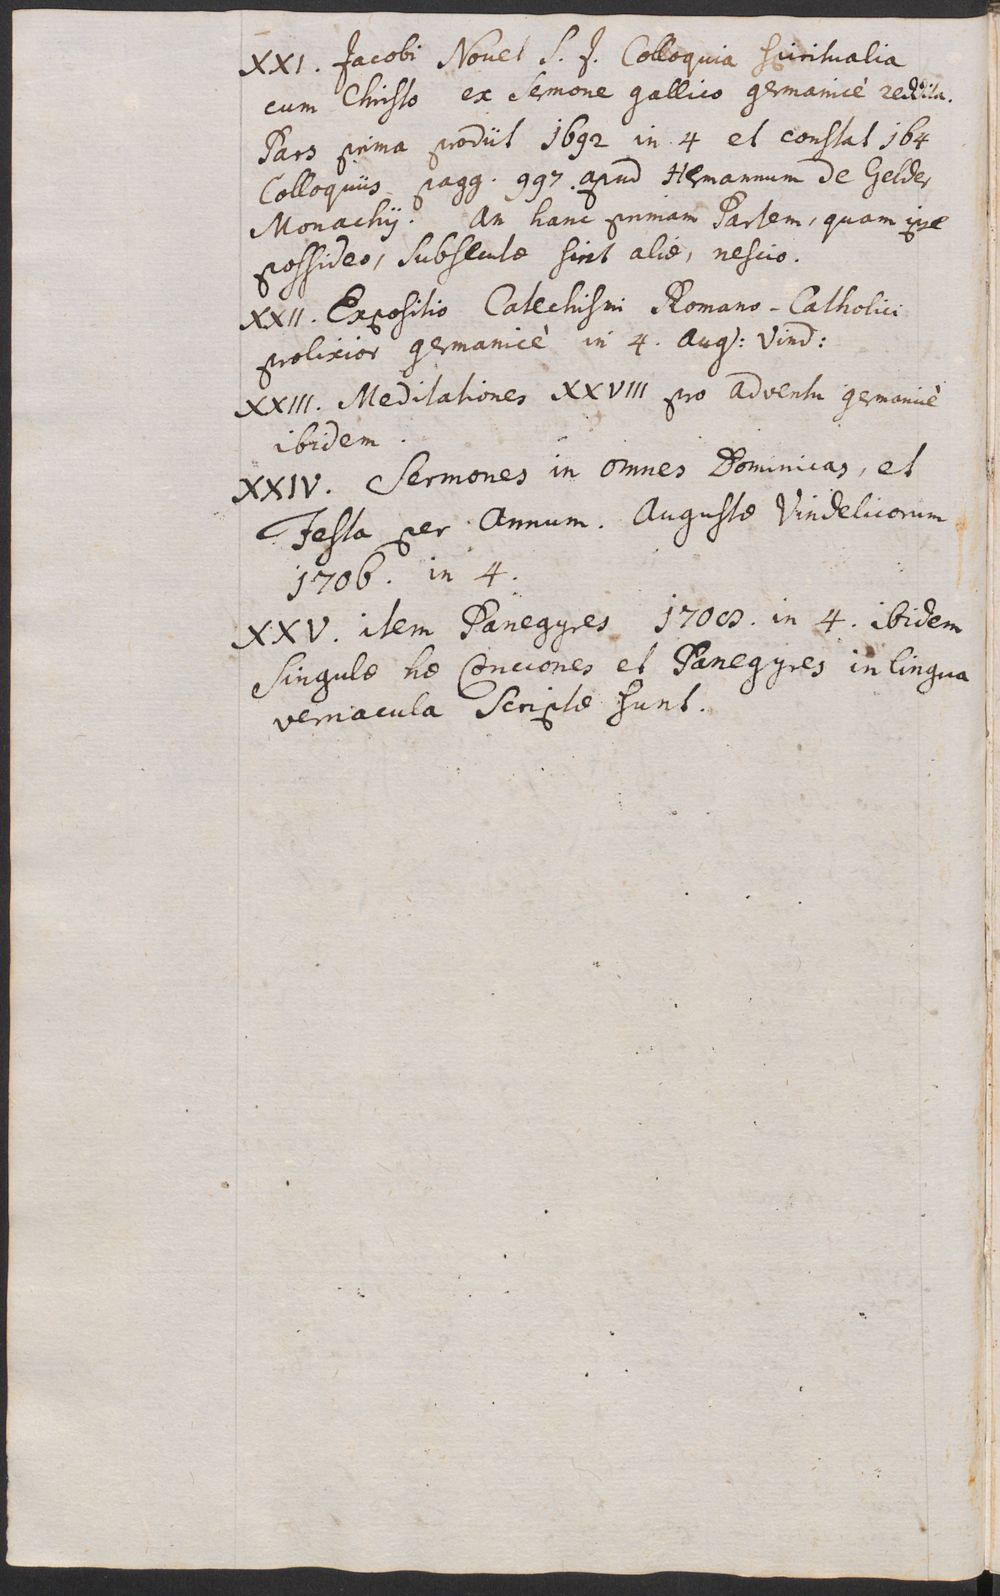 XXI. Jacobi Novet S. J. Colloquia spiritualia
cum Christo ex Sermone gallico germanicè reddita.
Pars prima prodiit 1692 in 4 et constat 164
Colloquiis pagg. 997. apud Hermannum de Gelder
Monachij. An hanc primam Partem, quam ipse
possideo, subsecutæ sint aliæ, nescio.
XXII. Expositio Catechismi Romano-Catholici
prolixior germanicè in 4. Aug: Vind:
XXIII. Meditationes XXVIII pro adventu germanicè
ibidem.
XXIV. Sermones in omnes Dominicas, et
Festa per Annum. Augustæ Vindelicorum
1706. in 4.
XXV. item Panegyres 1708. in 4. ibidem
Singulæ hæ Conciones et Panegyres in lingua
vernacula Scriptæ sunt.